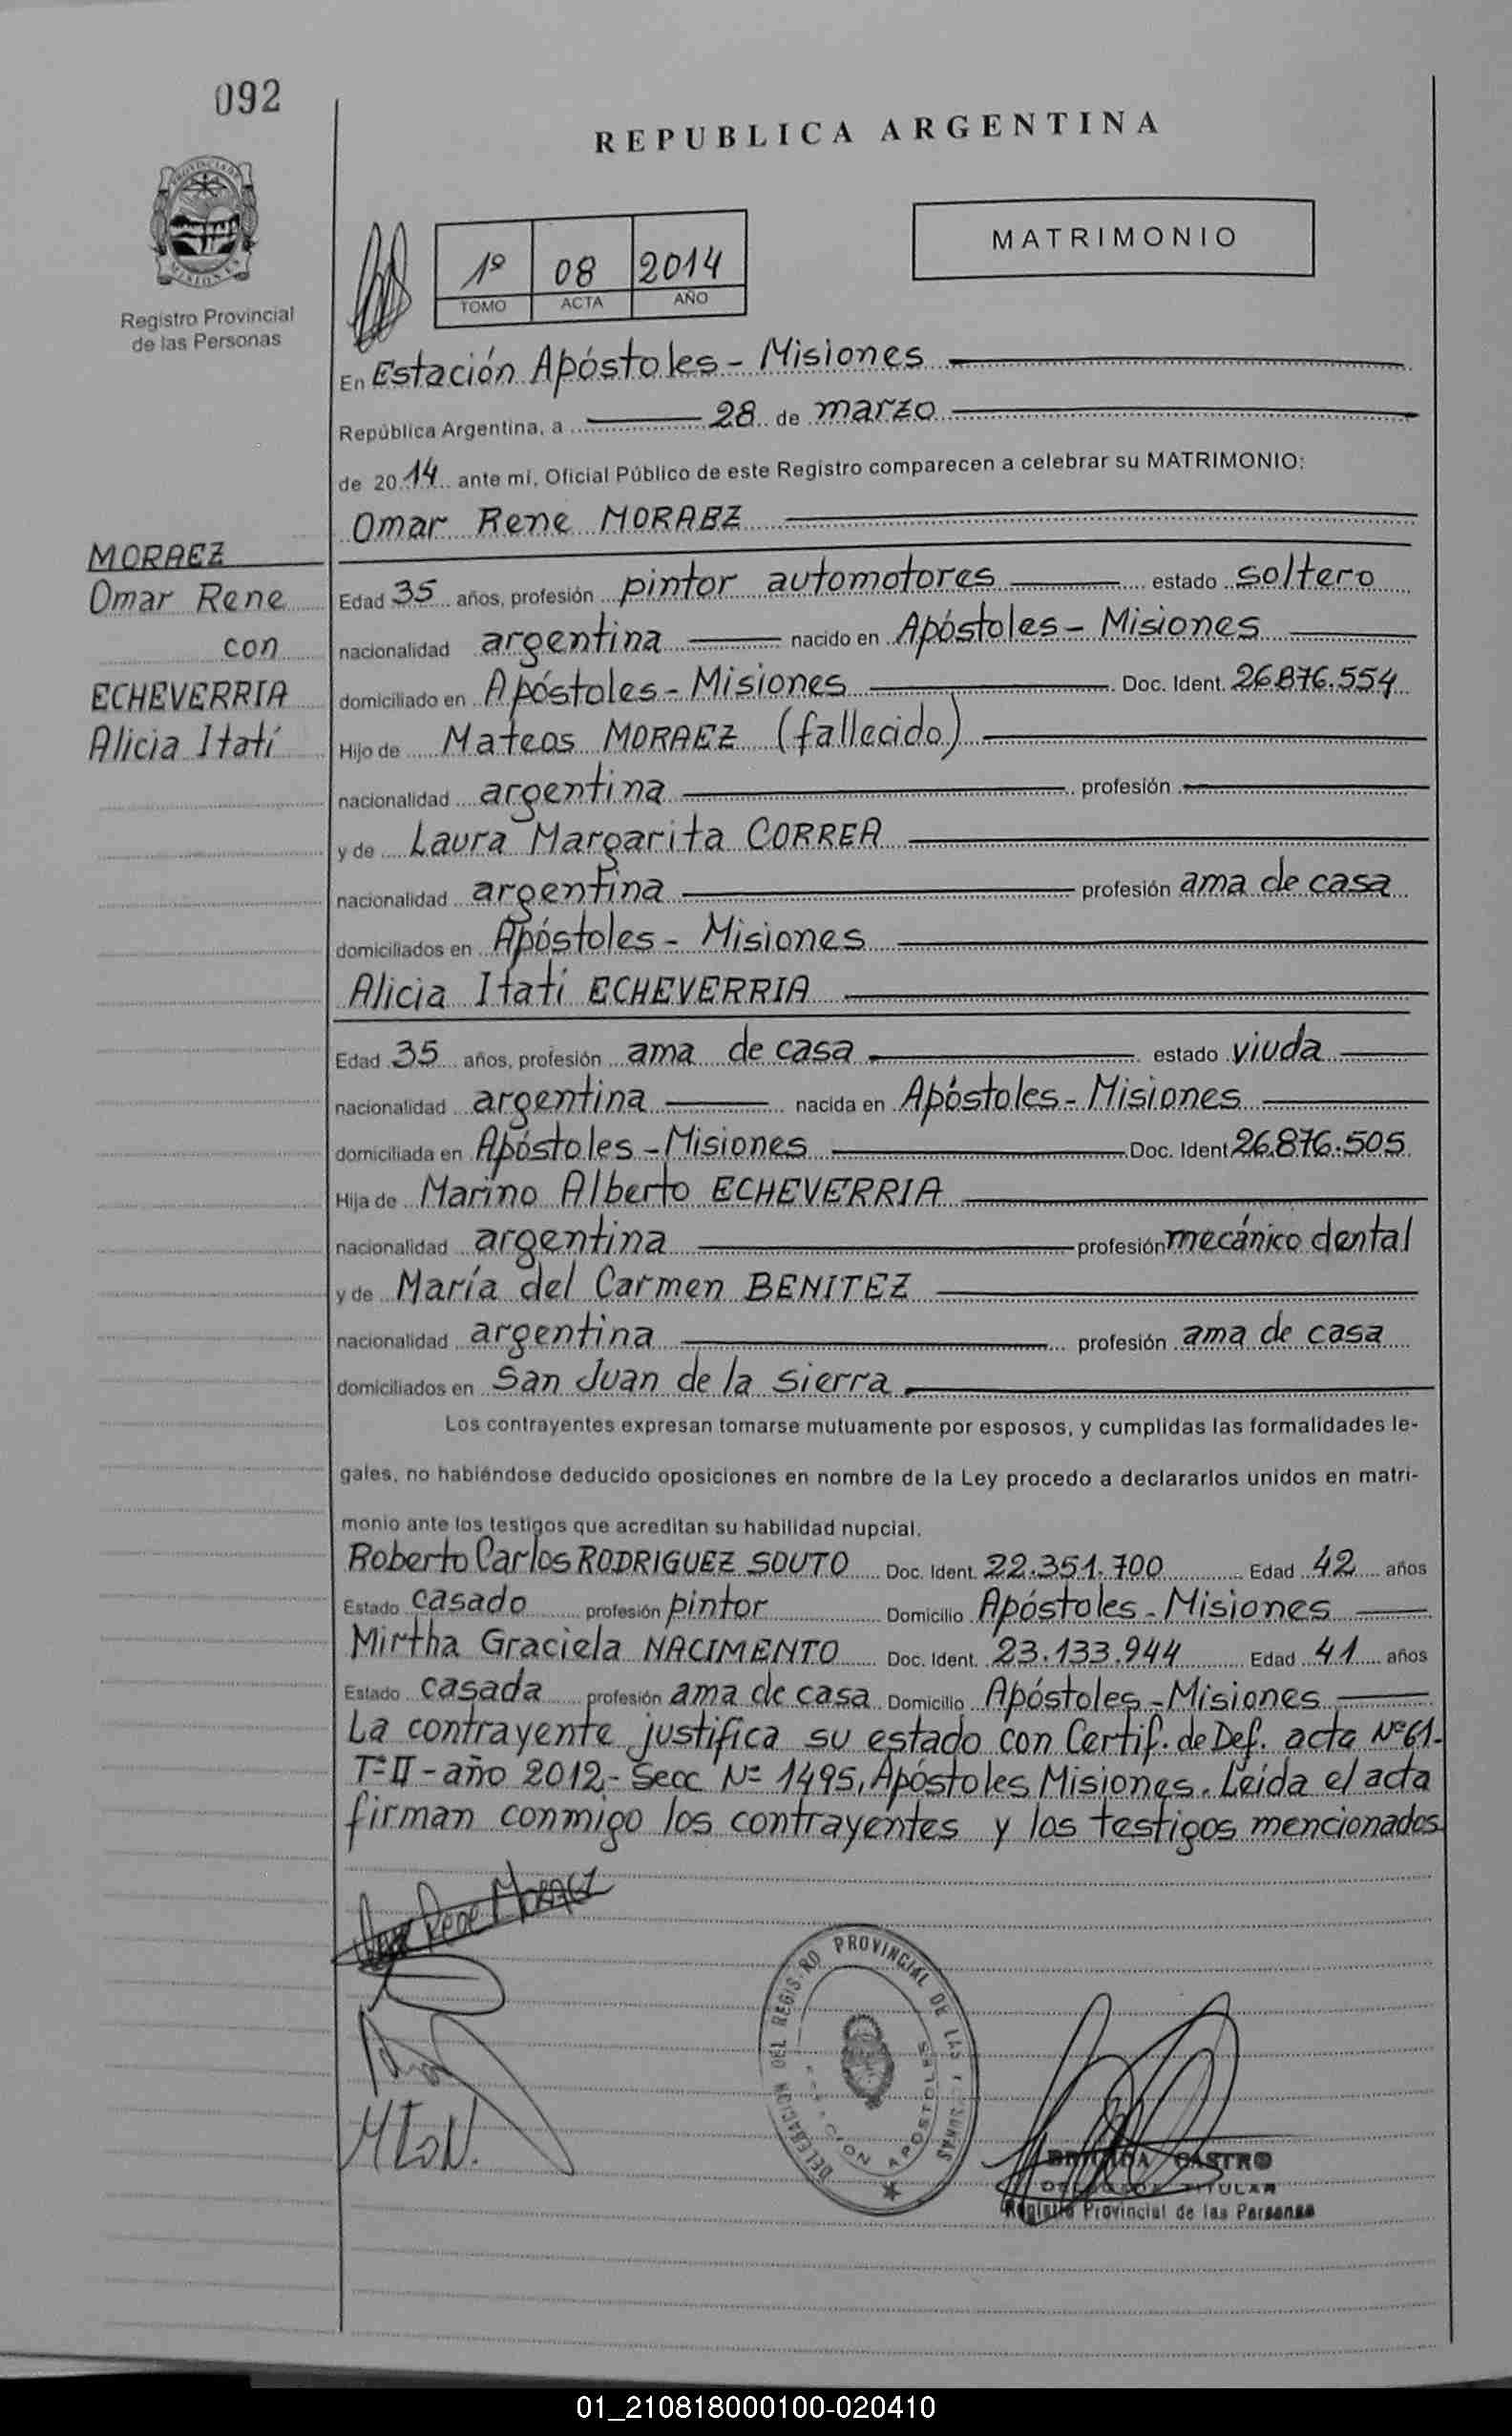 092
REPUBLICA ARGENTINA
PROVINCIA DE
MISIONES
Registro Provincial
de las Personas
1º 08 2014
TOMO ACTA AÑO
MATRIMONIO
En Estación Apóstoles - Misiones
República Argentina, a 28 de marzo
de 2014 ante mí, Oficial Público de este Registro comparecen a celebrar su MATRIMONIO:
Omar Rene MORAEZ
MORAEZ
Omar Rene
con
ECHEVERRIA
Alicia Itatí
Edad 35 años, profesión pintor automotores estado soltero
nacionalidad argentina nacido en Apóstoles - Misiones
domiciliado en Apóstoles - Misiones Doc. Ident. 26.876.554
Hijo de Mateos MORAEZ (fallecido)
nacionalidad argentina profesión
y de Laura Margarita CORREA
nacionalidad argentina profesión ama de casa
domiciliados en Apóstoles - Misiones
Alicia Itatí ECHEVERRIA
Edad 35 años, profesión ama de casa estado viuda
nacionalidad argentina nacida en Apóstoles - Misiones
domiciliada en Apóstoles - Misiones Doc. Ident 26.876.505
Hija de Marino Alberto ECHEVERRIA
nacionalidad argentina profesión mecánico dental
y de María del Carmen BENITEZ
nacionalidad argentina profesión ama de casa
domiciliados en San Juan de la Sierra
Los contrayentes expresan tomarse mutuamente por esposos, y cumplidas las formalidades le-
gales, no habiéndose deducido oposiciones en nombre de la Ley procedo a declararlos unidos en matri-
monio ante los testigos que acreditan su habilidad nupcial.
Roberto Carlos RODRIGUEZ SOUTO Doc. Ident. 22.351.700 Edad 42 años
Estado casado profesión pintor Domicilio Apóstoles - Misiones
Mirtha Graciela NACIMENTO Doc. Ident. 23.133.944 Edad 41 años
Estado casada profesión ama de casa Domicilio Apóstoles - Misiones
La contrayente justifica su estado con Certif. de Def. acta Nº 61-
Tº II - año 2012 - Secc Nº 1495, Apóstoles Misiones. Leída el acta
firman conmigo los contrayentes y los testigos mencionados
Rene Moraez
DELEGACION DEL REGISTRO PROVINCIAL DE LAS
APOSTOLES
CASTRO
TITULAR
Registro Provincial de las Personas
01_210818000100-020410